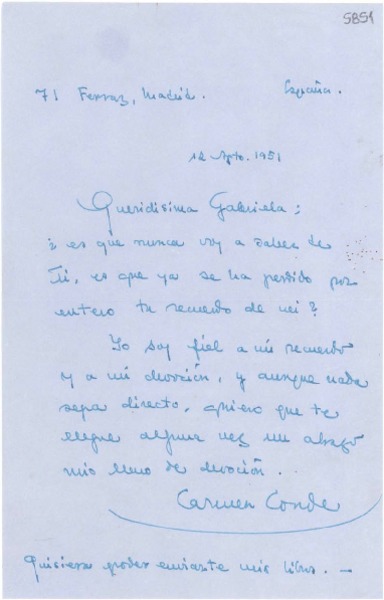 5851
71 Ferraz, Madrid. España.
12 Agto. 1951
Queridísima Gabriela:
¿es que nunca voy a saber de
Ti, es que ya se ha perdido por
entero tu recuerdo de mi?
Yo soy fiel a mi recuerdo
y a mi devoción, y aunque nada
sepa directo, quiero que te
llegue alguna vez un abrazo
mio lleno de devoción.
Carmen Conde
Quisiera poder enviarte mis libros. —